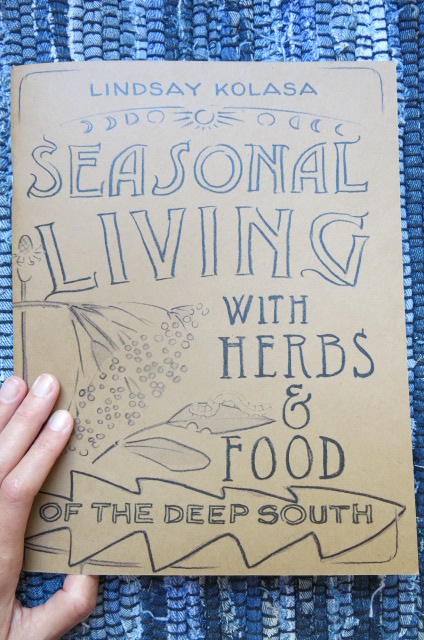 LINDSAY KOLASA
SEASONAL
LIVING
WITH
HERBS
&
FOOD
OF THE DEEP SOUTH